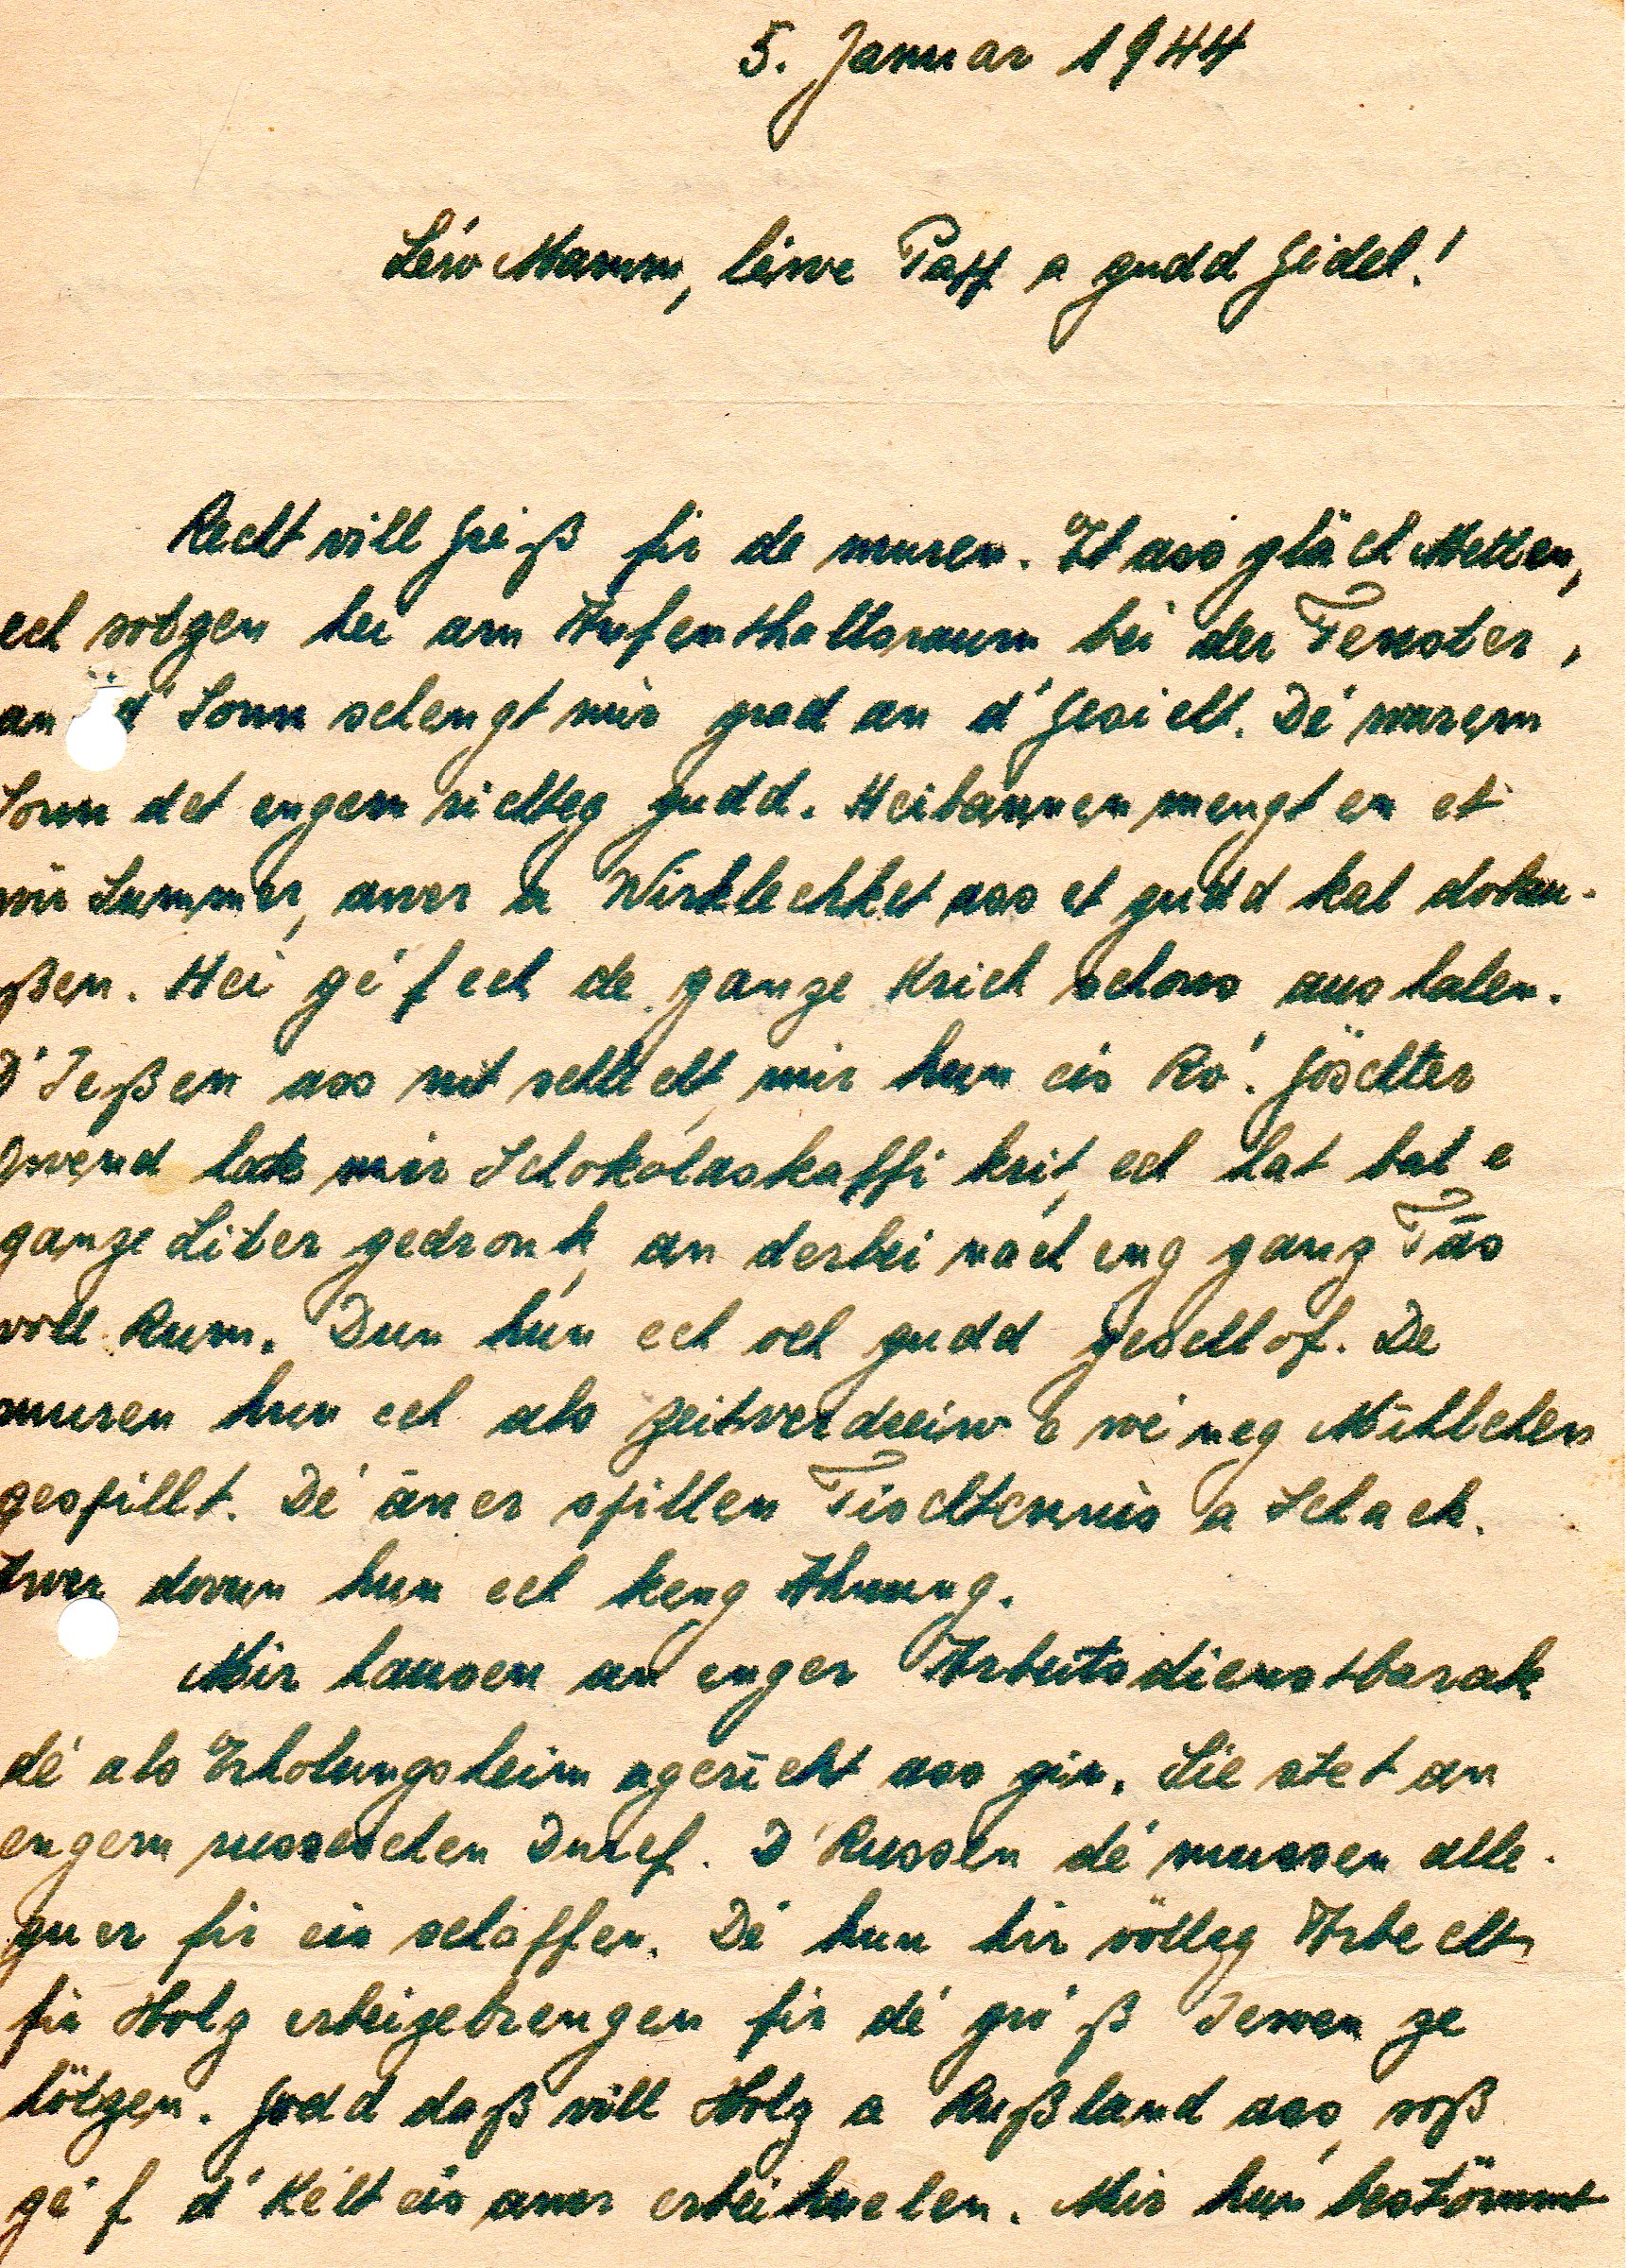 5. Januar 1944
Léiv Mamm, léiwe Papp a gudd Gidel!
Recht vill Gréiß fir de muren. Et ass gläch Metten,
ech sötzen hei am Aufenthaltsraum bei der Fenster,
an d'Sonn schengt mir grad an d'Gesicht. Dé' warem
Sonn det engem richteg gudd. Heibannen mengt en et
wir Summer, awer a Wirklechket ass et gudd kal dobau-
ßen. Hei gé'f ech de ganze Krich schons aushalen.
D'Ießen ass nit schlecht, mir hun eis Ro'. Göschter
Owend hate mir Schokolaskaffi krit, ech hat bal e
ganze Liter gedronk, an derbei nach eng ganz Täs
voll Rum. Dun hun ech och gudd geschlof. De
muren hun ech als Zeitverdreiw e wéineg Mühlchen
gespillt. Dé' äner spillen Tischtennis a Schach.
Awer dovun hun ech keng Ahnung.
Mir hausen an enger Arbeitsdienstbarak
dé' als Erholungsheim ageriicht ass gin. Sie stet an
engem russeschen Duref. D'Russen dé' mussen alle-
guer fir eis schaffen. Dé' hun hir völleg Arbecht
fir Holz erbeizebrengen fir dé' gro'ß Iewen ze
hötzen. Gudd daß vill Holz a Rußland ass, soß
gé'f d'Kélt eis awer erbeihuelen. Mir hun bestömmt